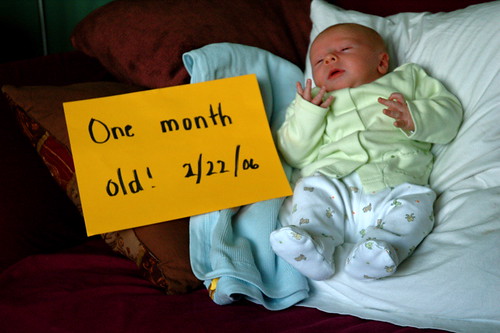 One month
old! 2/22/06